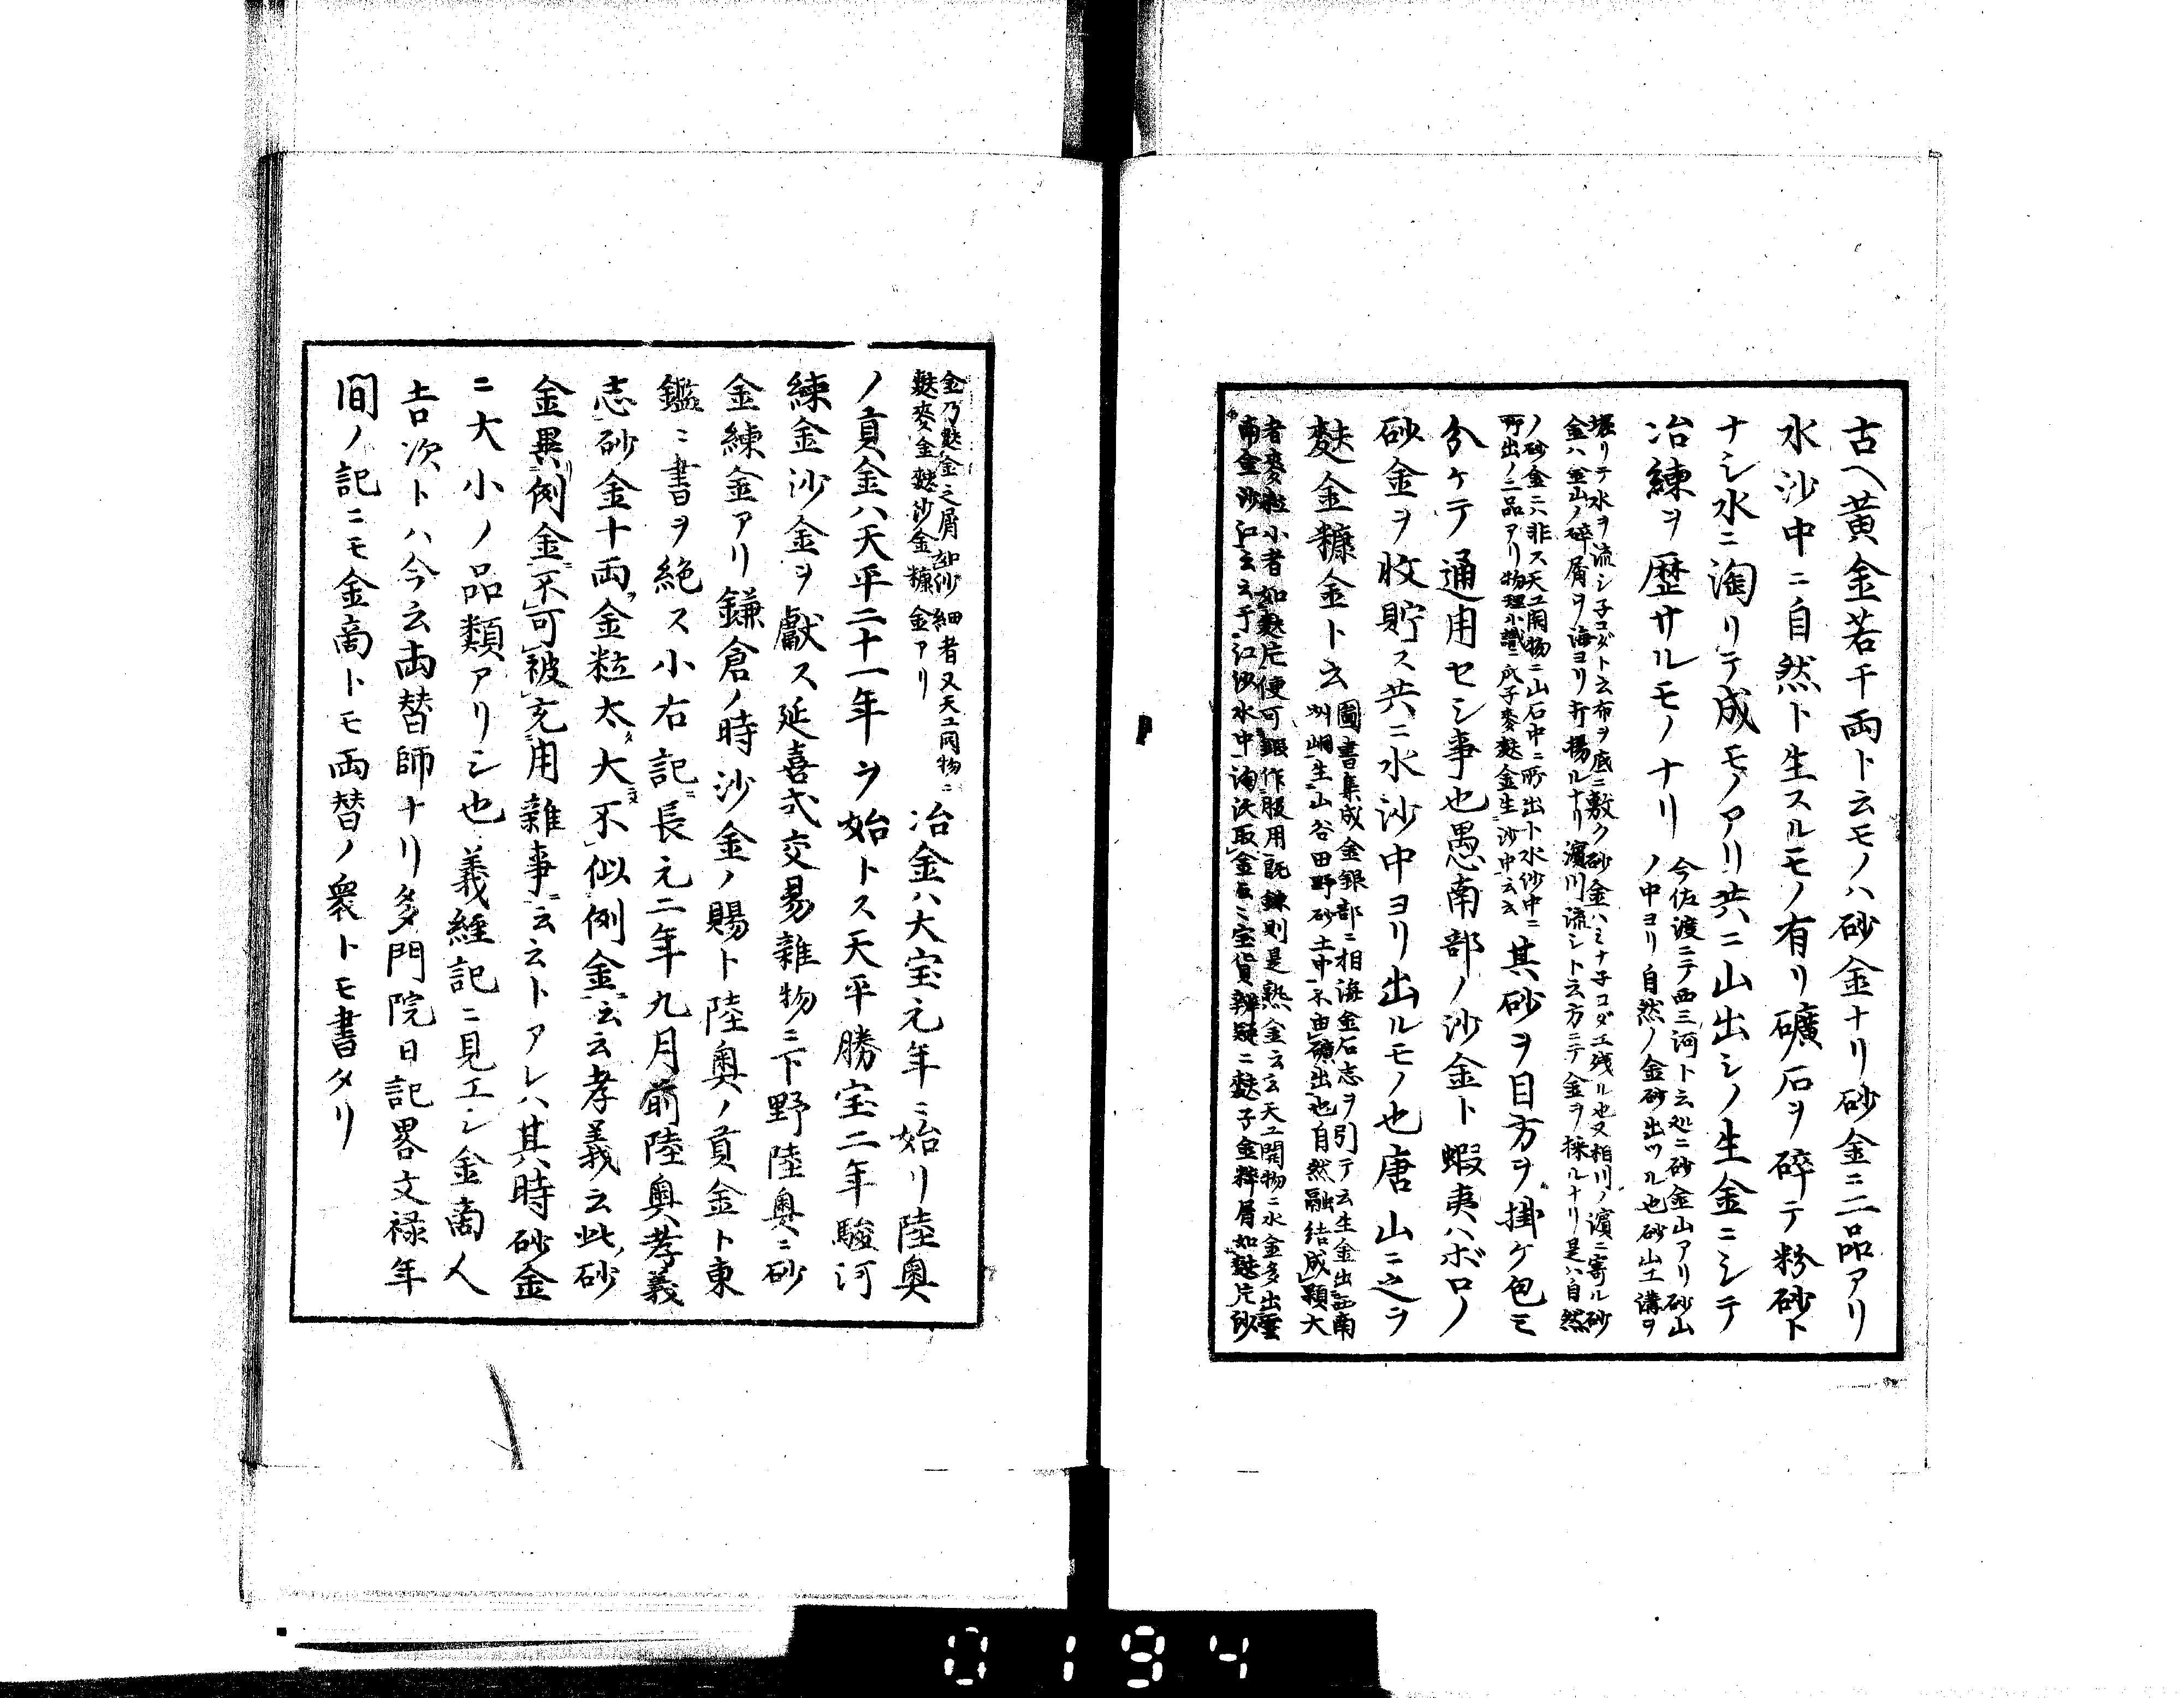 古ヘ黄金若干両ト云モノハ砂金ナリ砂金ニ二品アリ
水沙中ニ自然ト生スルモノ有リ礦石ヲ碎テ粉砂ト
ナシ水ニ淘リテ成モノアリ共ニ山出シノ生金ニシテ
冶練ヲ歴サルモノナリ
今佐渡ニテ西三河ト云処ニ砂金山アリ砂山
ノ中ヨリ自然ノ金砂出ツル也砂山エ溝ヲ
堀リテ水ヲ流シ子コダト云布ヲ底ニ敷ク砂金ハミナ子コダエ残ル也又相川ノ濱ニ寄ル砂
金ハ金山ノ碎屑ヲ海ヨリ打揚ルナリ濱川流シト云方ニテ金ヲ採ルナリ是ハ自然
ノ砂金ニハ非ス天工開物ニ山石中ニ所出ト水沙中ニ
所出ノ二品アリ物理小識ニ瓜子麥麩金生沙中云云
其砂ヲ目方ヲ掛ケ包ミ
分ケテ通用セシ事也愚南部ノ沙金ト蝦夷ハボロノ
砂金ヲ收貯ス共ニ水沙中ヨリ出ルモノ也唐山ニ之ヲ
麩金糠金ト云
圖書集成金銀部ニ相海金石志ヲ引テ云生金出西南
州峒生山谷田野砂土中不由礦出也自然融結成顆大
者麥粒小者如麩片便可鍜作服用既錬則是熟金云云天工開物ニ水金多出雲
南金沙江云云于江沙水中淘沃取金云云宝貨辨疑ニ麩子金粹屑如麩片砂
金乃麩金之屑如沙細者又天工開物ニ
麩麥金麩沙金糠金アリ
冶金ハ大宝元年ニ始リ陸奥
ノ貢金ハ天平二十一年ヲ始トス天平勝宝二年駿河
練金沙金ヲ獻ス延喜式交易雜物ニ下野陸奥ニ砂
金練金アリ鎌倉ノ時沙金ノ賜ト陸奥ノ貢金ト東
鑑ニ書ヲ絶ス小右記ニ長元二年九月前陸奥孝義
志砂金十両金粒太大不似例金云云孝義云此砂
金異例金不可被充用雜事云云トアレハ其時砂金
ニ大小ノ品類アリシ也義經記ニ見エシ金商人
吉次トハ今云両替師ナリ多門院日記畧文禄年
間ノ記ニモ金商トモ両替ノ衆トモ書タリ
0194